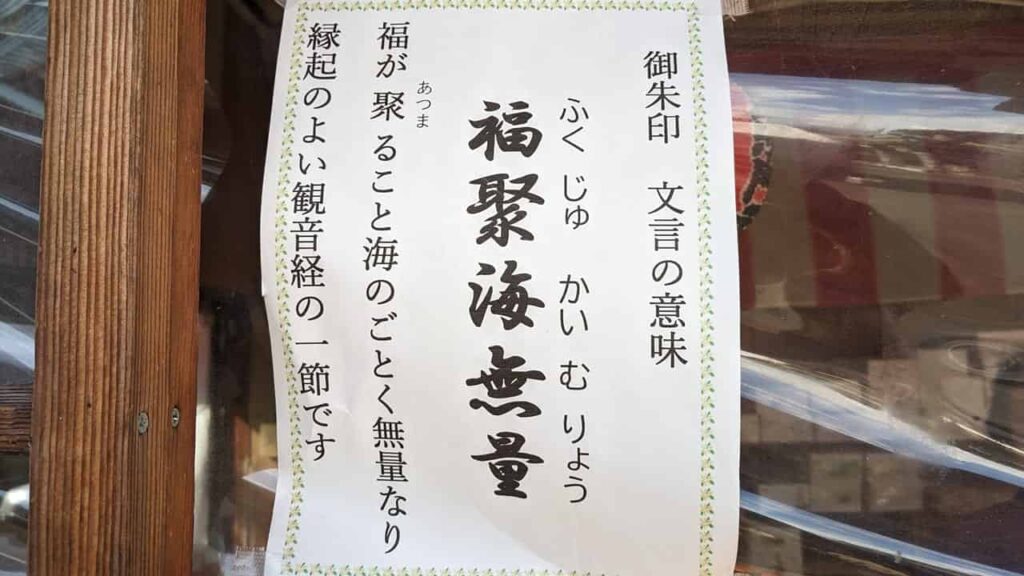 御朱印　文言の意味
ふくじゅ　かい　む　りょう
福聚海無量
あつま
福が聚ること海のごとく無量なり
縁起のよい観音経の一節です